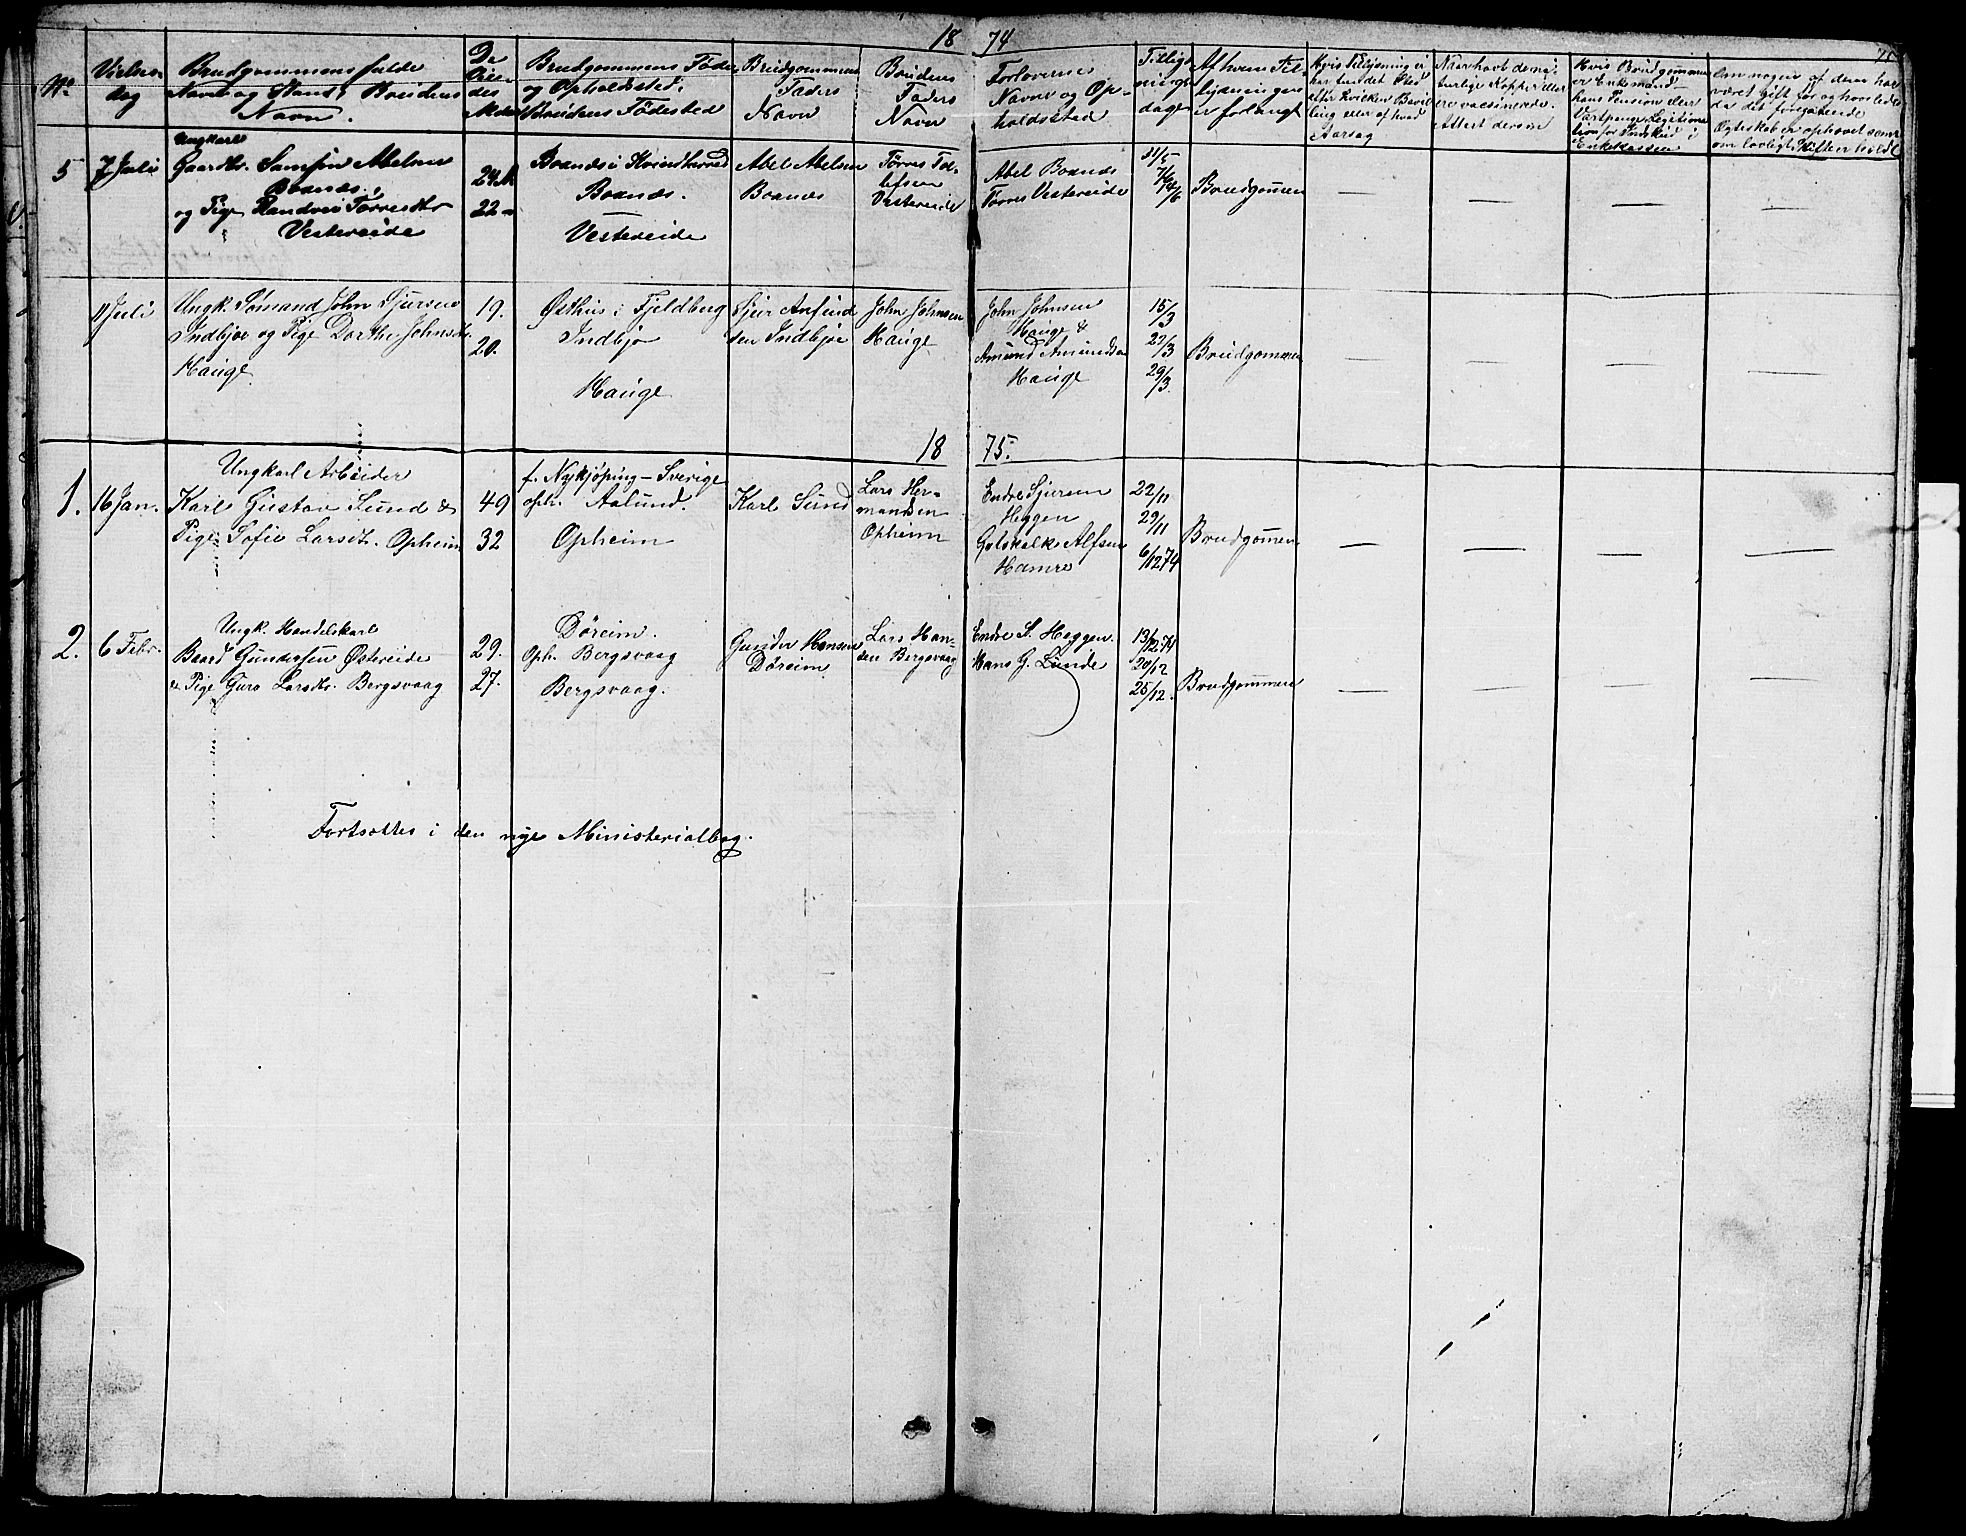 18 74
No
Vielses-
dag
Brudgommens fulde
Navn og Stand; Brudens
Navn.
De
Vie-
des
Alder
Brudgommens Føde-
og Opholdssted;
Brudens Fødested
Brudgommens
Faders
Navn
Brudens
Faders
Navn
Forlovernes
Navne og Op-
holdssted
Tillys-
nings-
dage
Af hvem Til-
lysningen
er forlangt
Hvis Tillysning ei
har fundet Sted
efter hvilken Bevil-
ling eller af hvad
Aarsag
Naar havt de na-
turlige Kopper eller
ere vaksinerede.
Attest derom
Hvis Brudgommen
er Enkemand
hans Pension eller
Enkekassen
Om nogen af dem har
været gift før og hvorledes
da det foregaaende
Ægteskab er ophævet samt
om lovligt Skifte er holdt
5
7 Juli
Ungkarl
Gaardbr. Samson Abelsen
Boanæs
og Pige Randvei Torresdtr
Vestereide
24
22
Boanæs i Kvindherred
Boanæs.
Vestereide
Abel Abelsen
Boanæs
Torres Tol-
lefsen
Vestereide
Abel Boanæs
Torres Vestereide
31/5
7/6
14/6
Brudgomen
— — — —
11 Juli
Ungk. Sømand John Sjursen
Indbjoe og Pige Dorthe Johnsdtr.
Hauge
19.
20.
Østhus i Fjeldberg
Indbjo
Hauge
Sjur Anfind
sen Indbjoe
John Johnsen
Hauge
John Johnsen
Hauge &
Amund Amundsen
Hauge
15/3
22/3
29/3
Brudgommen
— — — —
18 75.
1.
16 Jan.
Ungkarl Arbeider
Karl Gustav Lund &
Pige Sofie Larsdtr. Opheim
49
32
f. Nykjøping - Sverige
oph. Aalund.
Opheim
Karl Lund
Lars Her-
mandsen
Opheim
Endre Sjursen
Heggen
Gotskalk Alfsen
Hamre
22/11
29/11
6/12 74
Brudgomen
— — — —
2.
6 Febr.
Ungk. Handelskarl
Baard Gundersen Østereide
& Pige Guro Larsdtr. Bergsvaag
29.
27.
Døreim.
Oph. Bergsvaag
Bergsvaag.
Gunder Hansen
Døreim
Lars Han-
sen Bergsvaag
Endre S. Heggen
Hans G. Lunde
13/12 74
20/12
25/12.
Brudgommen
— — — —
Fortsættes i den nye Ministerialbog.